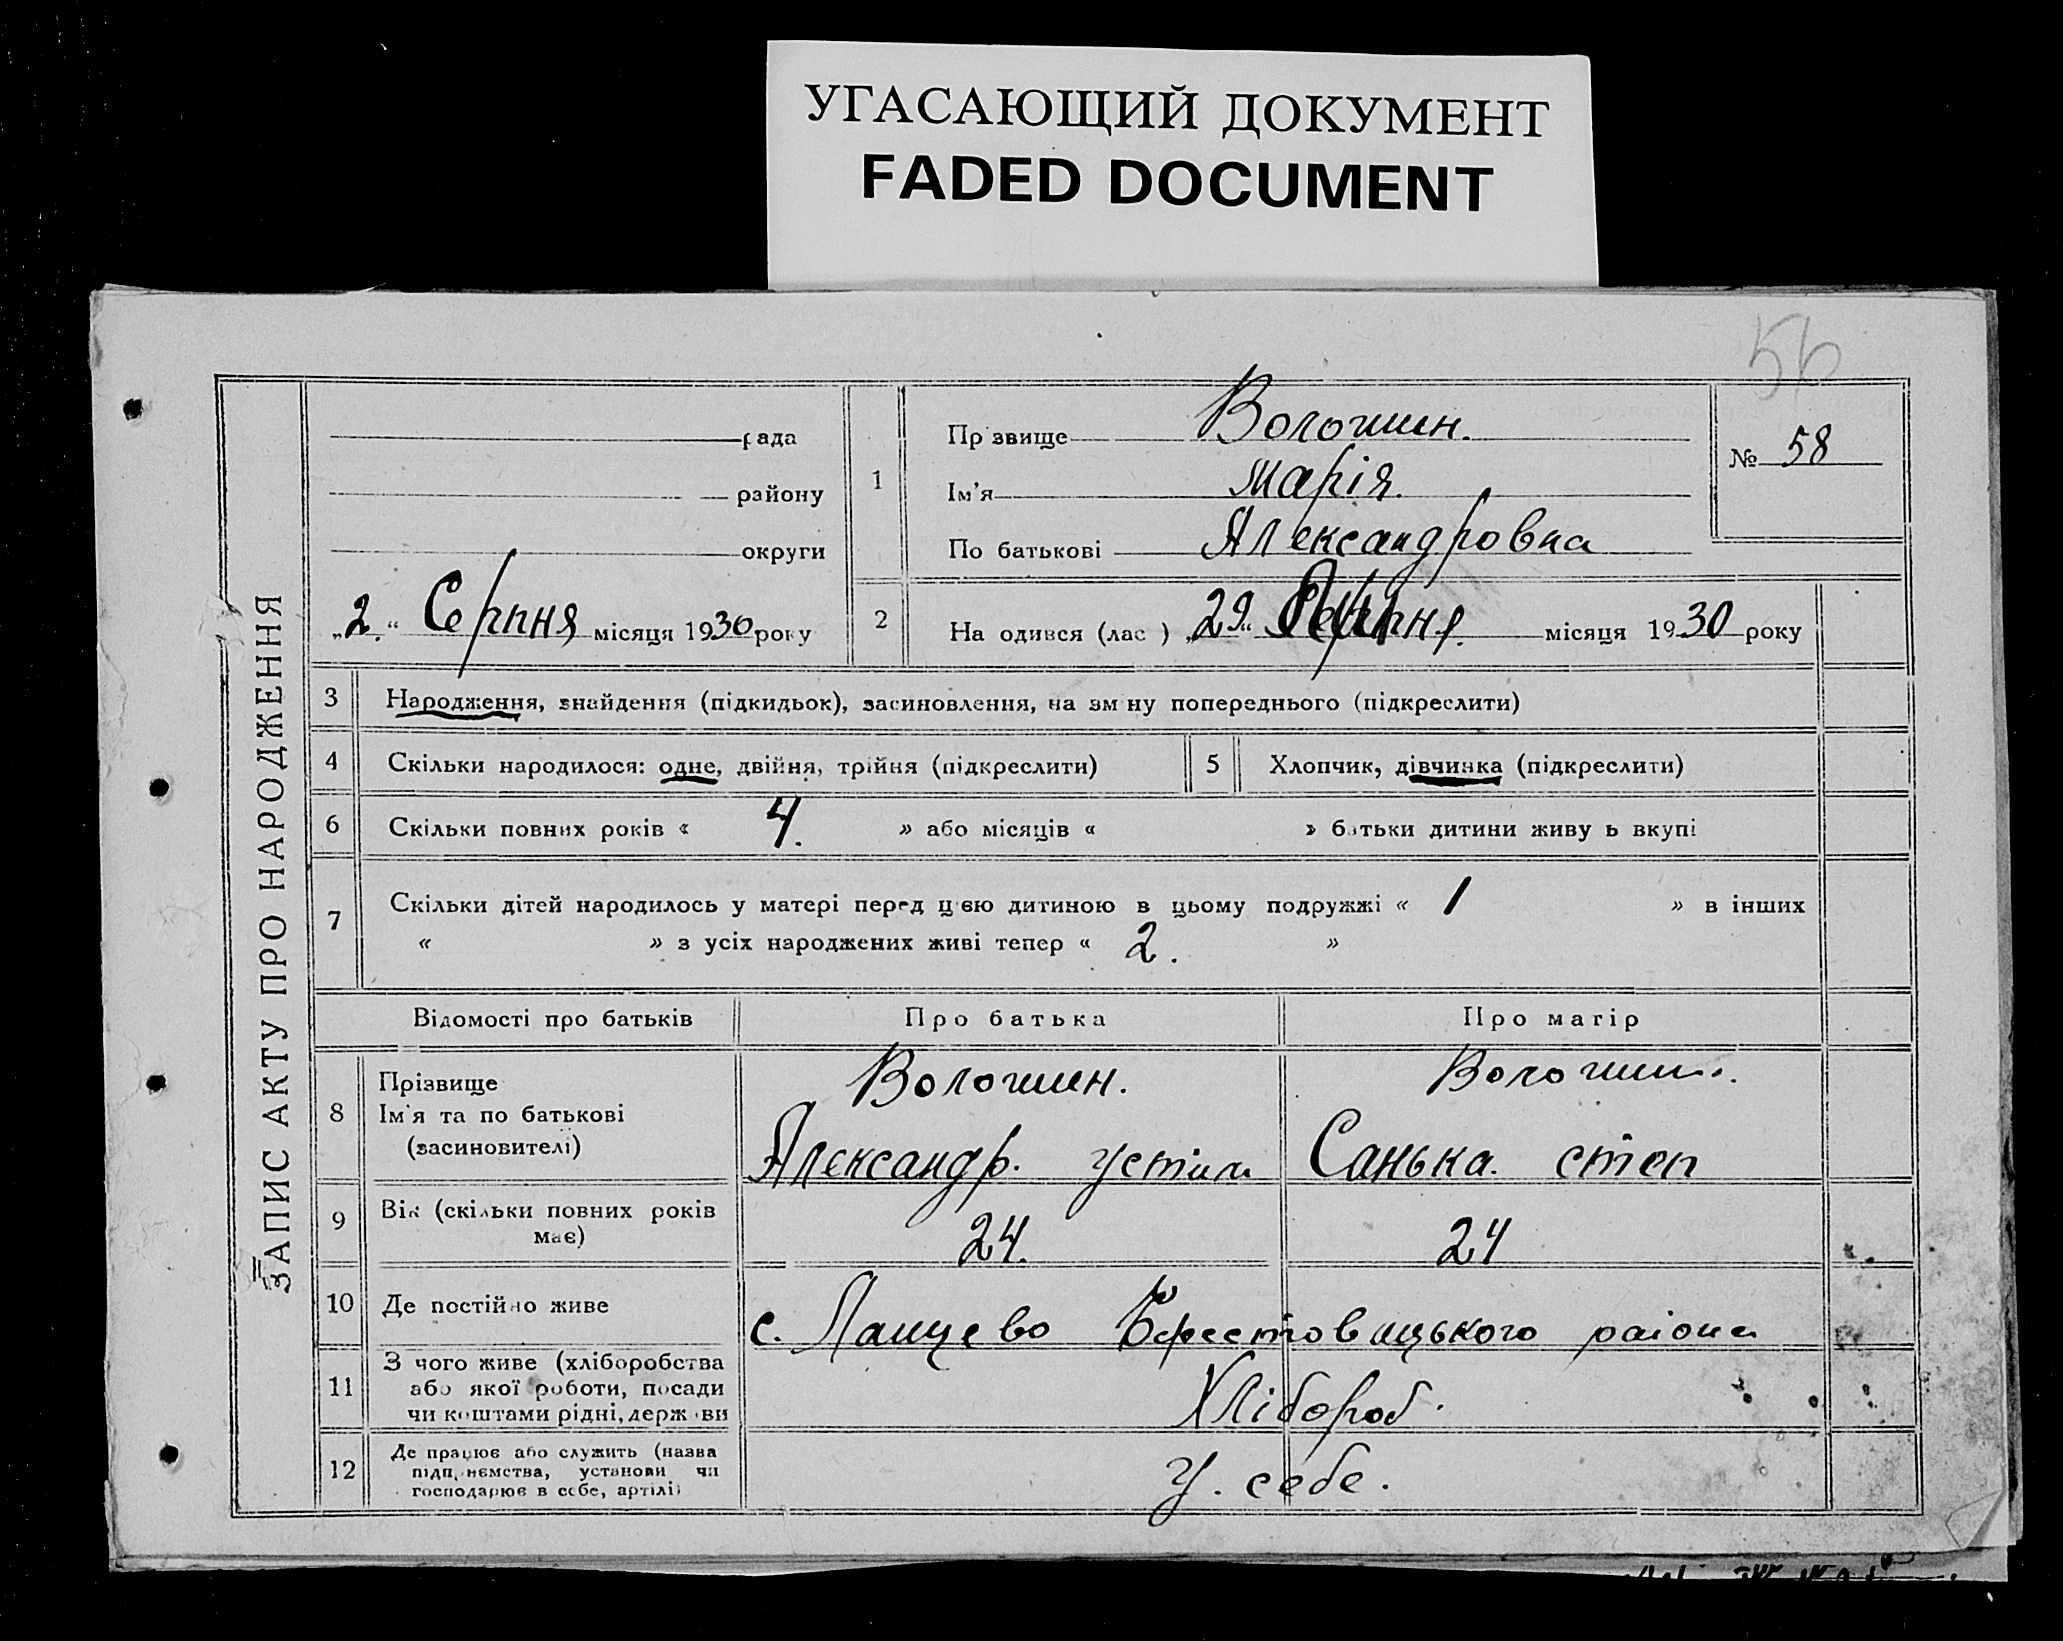 УГАСАЮЩИЙ ДОКУМЕНТ
FADED DOCUMENT
56
ЗАПИС АКТУ ПРО НАРОДЖЕННЯ
рада
району
округи
„2.“ Серпня місяця 1930 року
1
Прізвище Волошин.
Ім'я Марія.
По батькові Александровна
№ 58
2
На одився (лас ) „29“ місяця 1930 року
3 Народження, знайдення (підкидьок), засиновлення, на зм ну попереднього (підкреслити)
4 Скільки народилося: одне, двійня, трійня (підкреслити)
5 Хлопчик, дівчинка (підкреслити)
6 Скільки повних років « 4. » або місяців « » батьки дитини живу ь вкупі
7 Скільки дітей народилось у матері перед цєю дитиною в цьому подружжі « 1 » в інших
« » з усіх народжених живі тепер « 2. »
Відомості про батьків Про батька Про матір
8 Прізвище
Ім'я та по батькові
(засиновителі)
Волошин.
Александр. Устим
Волошин.
Санька. Степ
9 Вік (скільки повних років
має)
24.
24
10 Де постійно живе
с. Берестовицького района
11 З чого живе (хліборобства
або якої роботи, посади
чи коштами рідні, держави
Хлібороб.
12 Де працює або служить (назва
підп иємства, установи чи
господарює в себе, артілі)
У. себе.